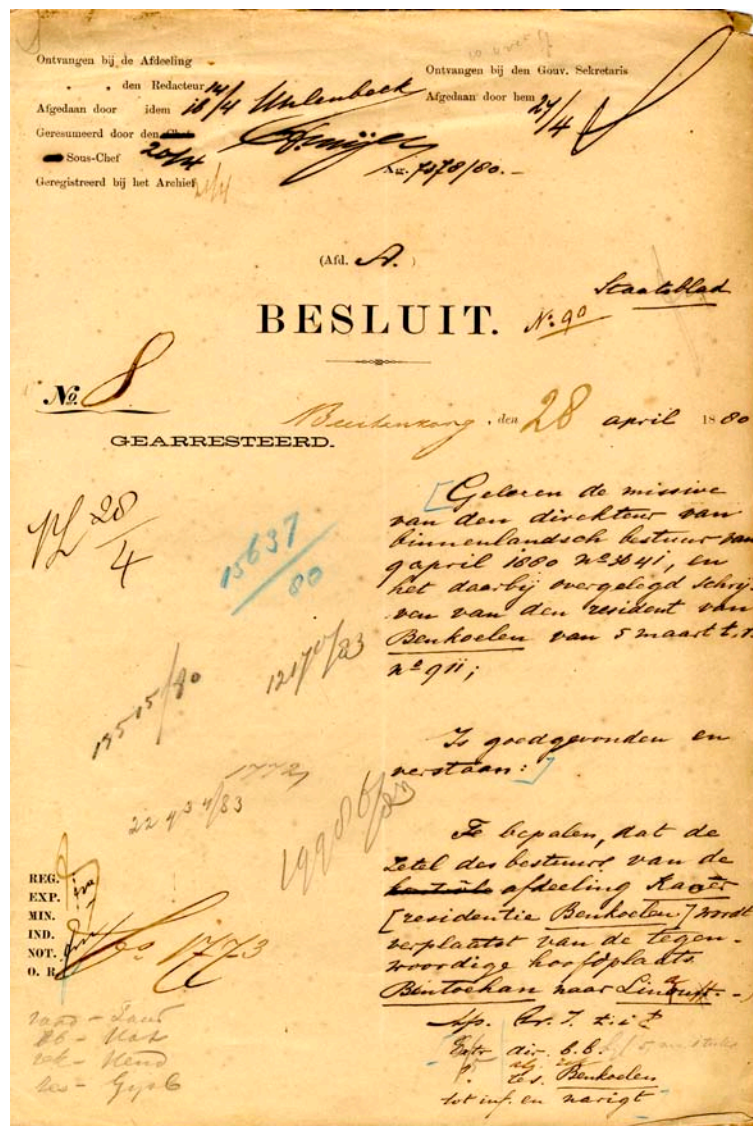 Ontvangen bij de Afdeeling
" " den Redacteur 14/4
Afgedaan door idem 18/4 Uhlenbeck
Geresumeerd door den Chef
Sous-Chef 20/4
Geregistreerd bij het Archief 21/4
Ontvangen bij den Gouv. Sekretaris
Afgedaan door hem 27/4
Ag. 7578/80.-
(Afd. A.)
BESLUIT.
Staatsblad
No. 90
No. 8
Buitenzorg, den 28 april 1880
GEARRESTEERD.
28/4
15637/80
13515/80
12170/83
1772
19986/83
[Gelezen de missive
van den direkteur van
binnenlandsch bestuur van
9 april 1880 no 3641, en
het daarbij overgelegd schrij-
ven van den resident van
Benkoelen van 5 maart t.v.
no 911;
Is goedgevonden en
verstaan:]
Te bepalen, dat de
zetel des bestuurs van de
kontrôle afdeeling Kauer
[residentie Benkoelen] wordt
verplaatst van de tegen-
woordige hoofdplaats
Bintoehan naar
REG.
EXP.
MIN.
IND.
NOT.
O. R.
1773
Extr dir. b.b.
res. Benkoelen
tot inf. en narigt